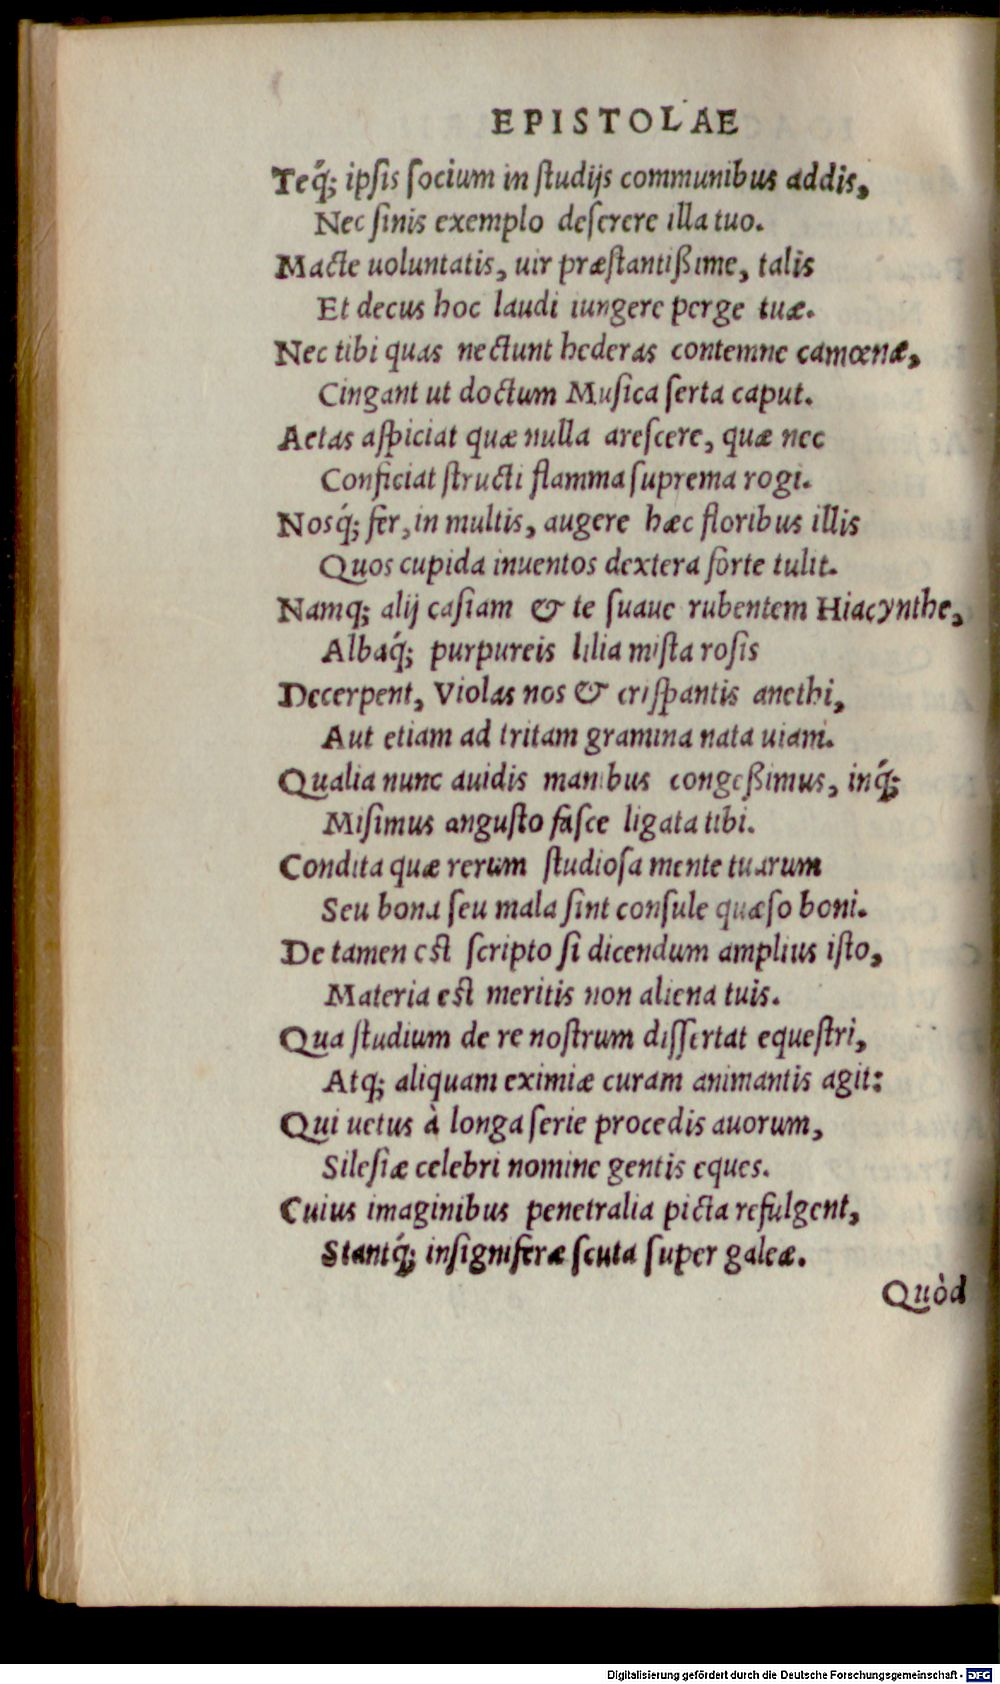 EPISTOLAE
Teq́; ipſis ſocium in ſtudijs communibus addis,
Nec ſinis exemplo deſerere illa tuo.
Macte uoluntatis, uir præſtantißime, talis
Et decus hoc laudi iungere perge tuæ.
Nec tibi quas nectunt hederas contemne camœnæ,
Cingant ut doctum Muſica ſerta caput.
Aetas aſpiciat quæ nulla areſcere, quæ nec
Conficiat ſtructi flamma ſuprema rogi.
Nosq́; fer, in multis, augere hæc floribus illis
Quos cupida inuentos dextera forte tulit.
Namq; alij caſiam & te ſuaue rubentem Hiacynthe,
Albaq́; purpureis lilia miſta roſis
Decerpent, Violas nos & criſpantis anethi,
Aut etiam ad tritam gramina nata uiam.
Qualia nunc auidis manibus congeßimus, inq́;
Miſimus anguſto faſce ligata tibi.
Condita quæ rerum ſtudioſa mente tuarum
Seu bona ſeu mala ſint conſule quæſo boni.
De tamen eſt ſcripto ſi dicendum amplius iſto,
Materia eſt meritis non aliena tuis.
Qua ſtudium de re noſtrum diſſertat equeſtri,
Atq; aliquam eximiæ curam animantis agit:
Qui uetus à longa ſerie procedis auorum,
Sileſiæ celebri nomine gentis eques.
Cuius imaginibus penetralia picta refulgent,
Stantq́; inſigniferæ ſcuta ſuper galeæ.
Quòd
Digitalisierung gefördert durch die Deutsche Forschungsgemeinschaft - DFG